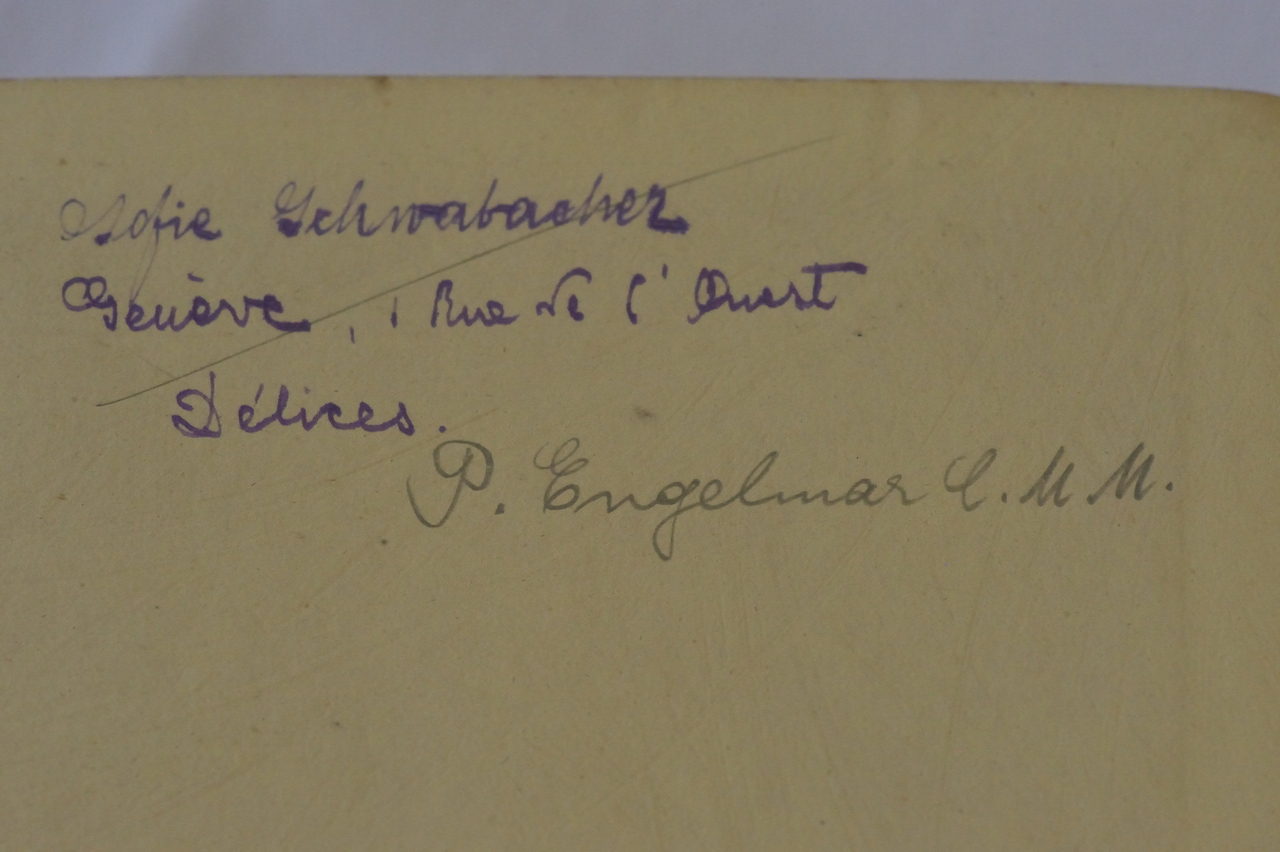 Sofie Schwabacher
Genève, 1 Rue de l'Ouest
Délices.
P. Engelmar C.M.M.